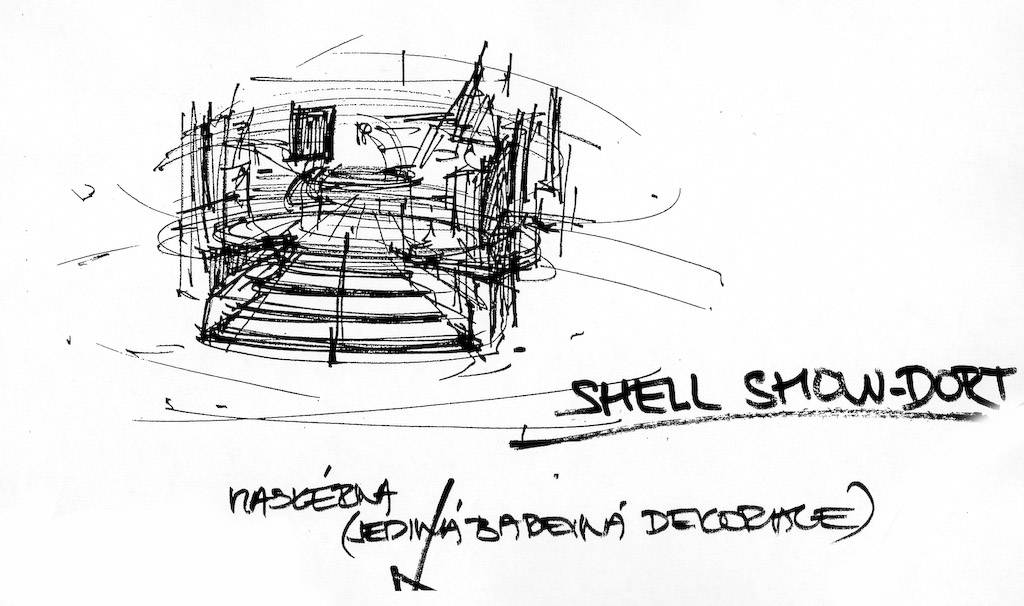 SHELL SHOW-DORT
MASKÉRNA
(JEDINÁ BAREVNÁ DEKORACE)